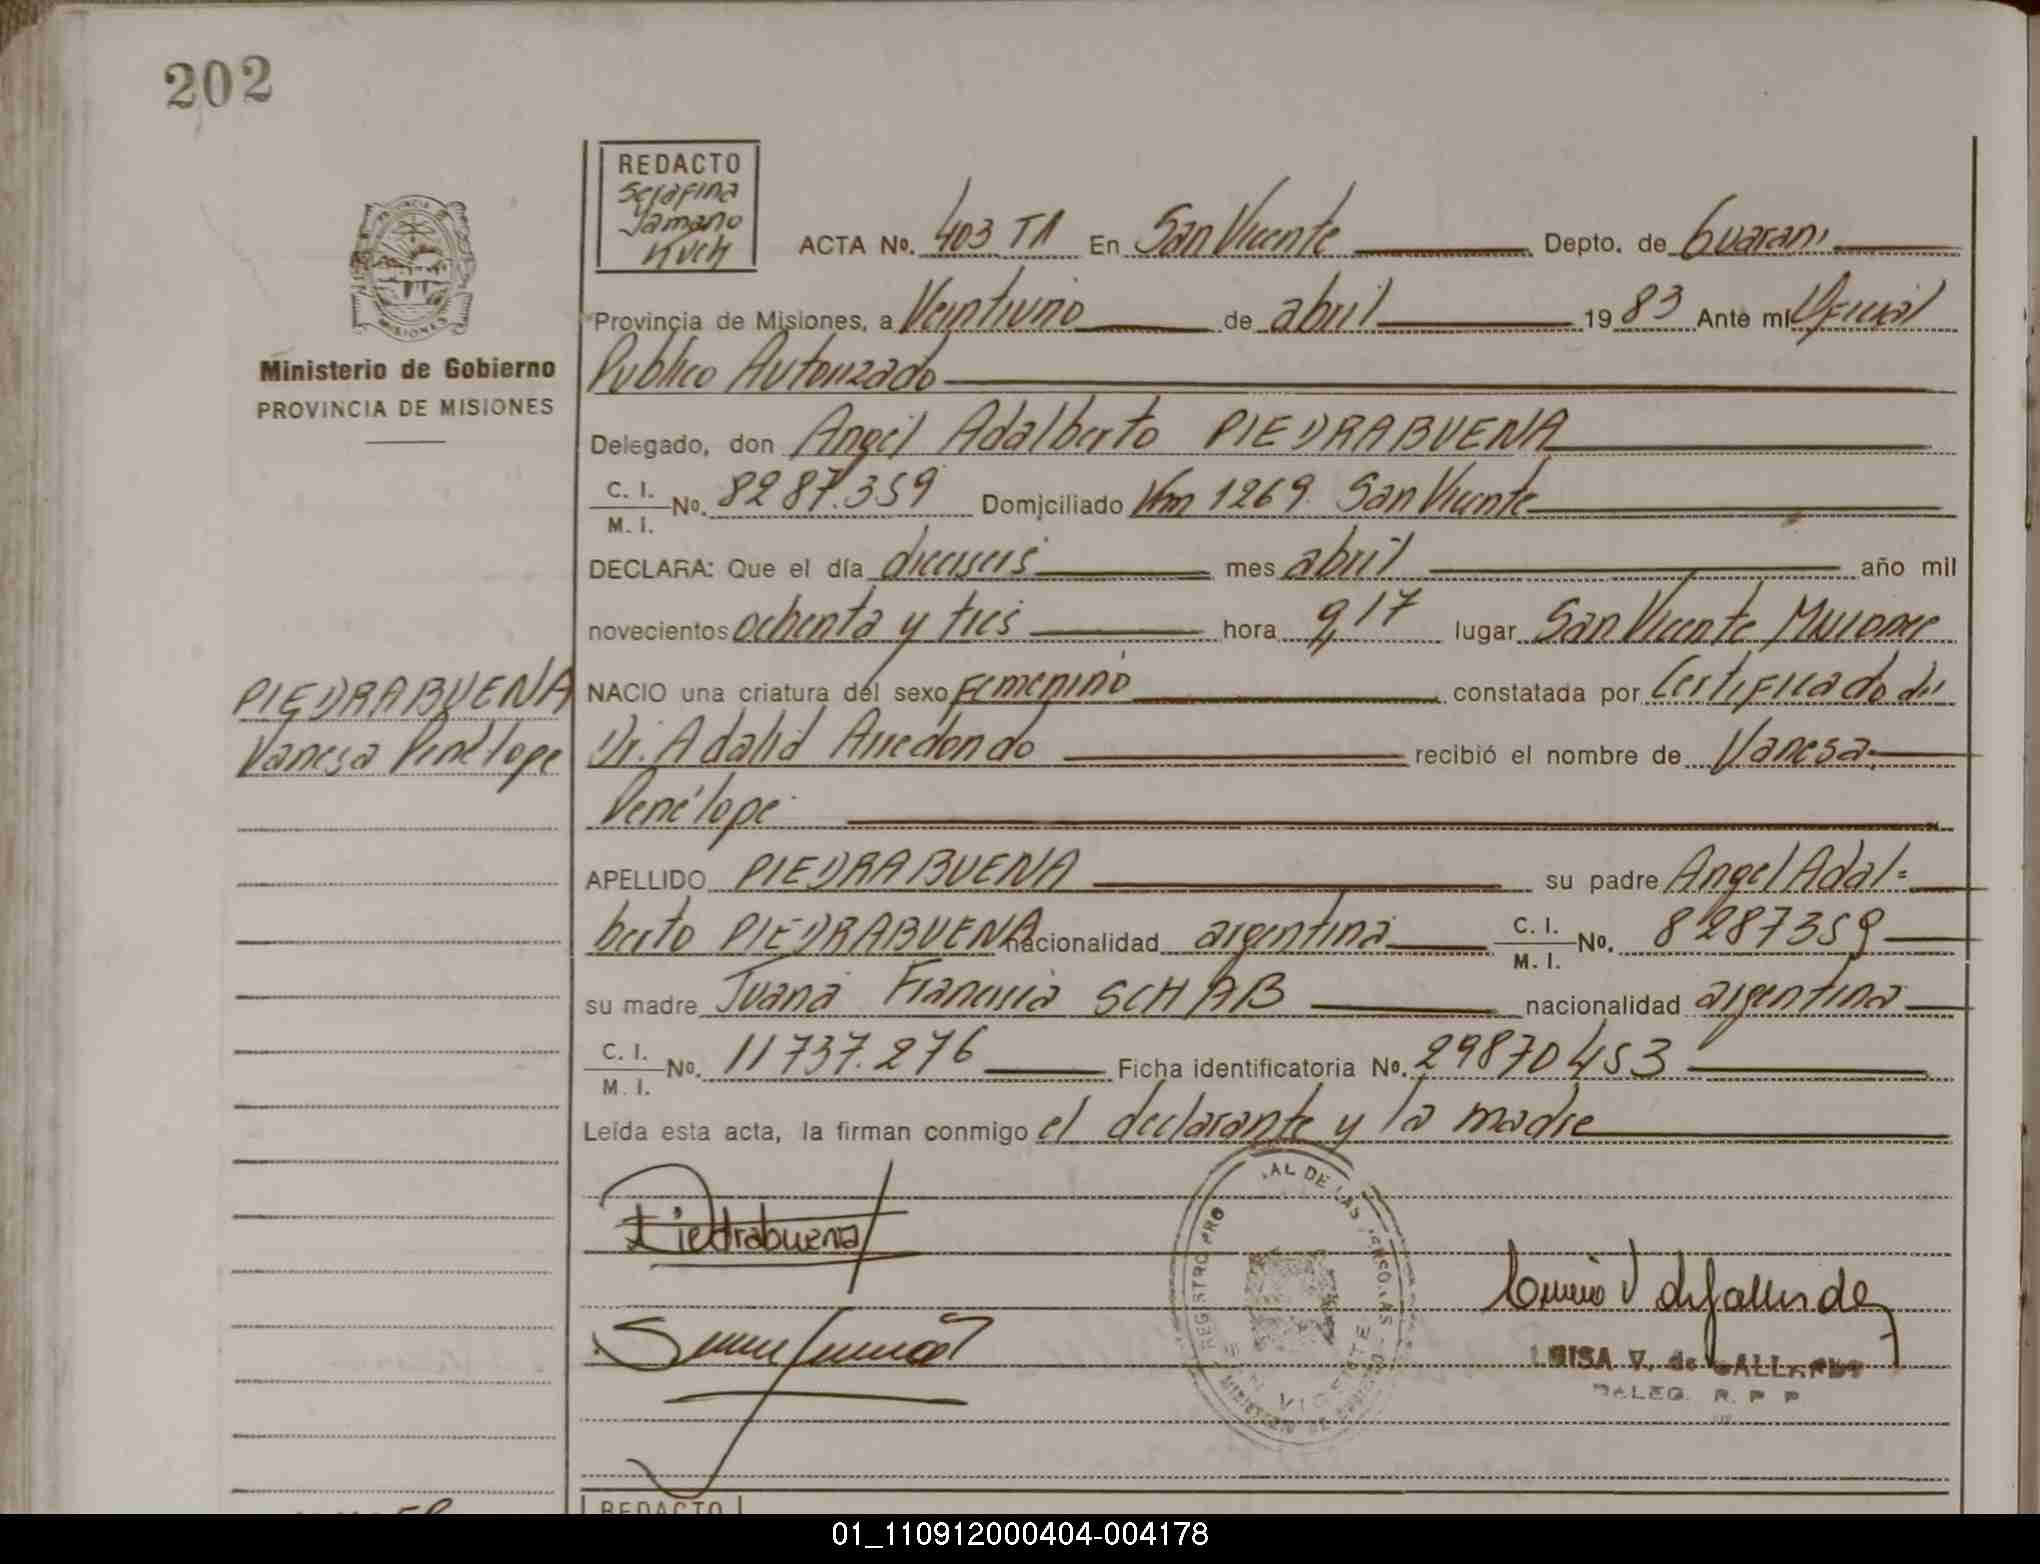 202
REDACTO
Serafina
Tamaño
Kuch
PROVINCIA DE
MISIONES
Ministerio de Gobierno
PROVINCIA DE MISIONES
ACTA No. 403 TA En San Vicente Depto. de Guarani
Provincia de Misiones, a Veintiuno de abril 1983 Ante mi Oficial
Publico Autorizado
Delegado, don Angel Adalberto PIEDRABUENA
C. I. / M. I. No. 8287.359 Domiciliado Km 1269 San Vicente
DECLARA: Que el día dieciseis mes abril año mil
novecientos ochenta y tres hora 9,17 lugar San Vicente Misiones
NACIO una criatura del sexo Femenino constatada por Certificado del
Dr. Adalid Arredondo recibió el nombre de Vanesa
Penélope
PIEDRABUENA
Vanesa Penélope
APELLIDO PIEDRABUENA su padre Angel Adal=
berto PIEDRABUENA nacionalidad argentina C. I. / M. I. No. 8287359
su madre Juana Francisca SCHAB nacionalidad argentina
C. I. / M. I. No. 11737.276 Ficha identificatoria No. 29870453
Leída esta acta, la firman conmigo el declarante y la madre
Piedrabuena
REGISTRO PRO AL DE LAS
SAN VICENTE
LUISA V. de GALLARDO
DALEG. R. P P
REDACTO
01_110912000404-004178